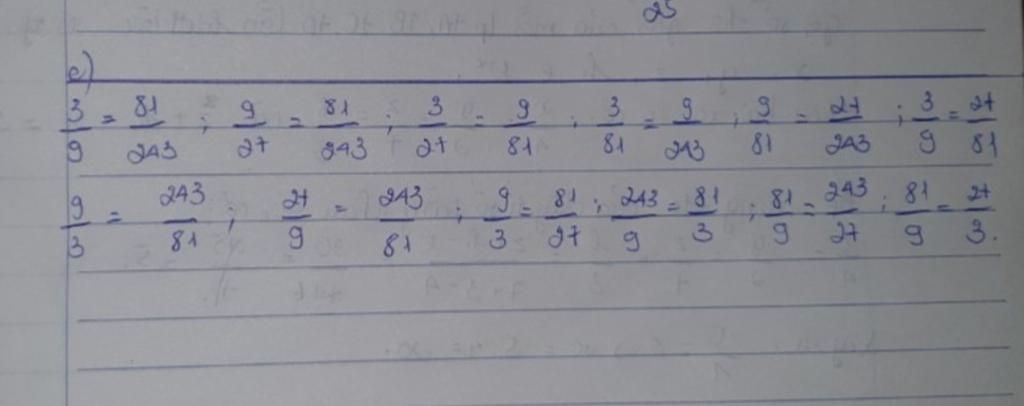 25
c)
3/9 = 81/243 ; 9/27 = 81/243 ; 3/27 = 9/81 ; 3/81 = 9/243 ; 9/81 = 27/243 ; 3/9 = 27/81
9/3 = 243/81 ; 27/9 = 243/81 ; 9/3 = 81/27 ; 243/9 = 81/3 ; 81/9 = 243/27 ; 81/9 = 27/3.